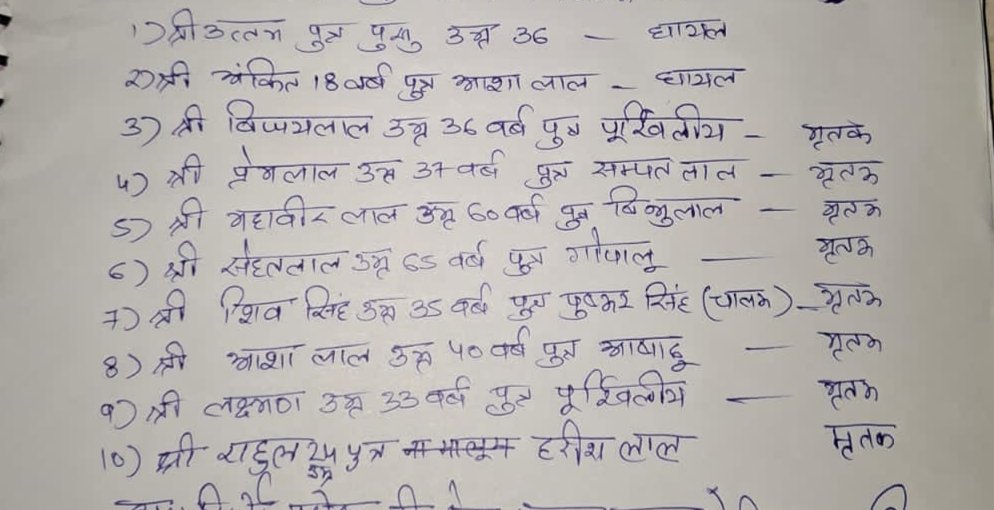 1) श्री उत्तम पुत्र पुसु उम्र 36 — घायल
2) श्री अंकित 18 वर्ष पुत्र आशा लाल — घायल
3) श्री विजयलाल उम्र 36 वर्ष पुत्र — मृतक
4) श्री प्रेमलाल उम्र 37 वर्ष पुत्र सम्पत लाल — मृतक
5) श्री महावीर लाल उम्र 60 वर्ष पुत्र — मृतक
6) श्री उम्र 65 वर्ष पुत्र गोपालू — मृतक
7) श्री शिव सिंह उम्र 35 वर्ष पुत्र पुष्कर सिंह (चालक) — मृतक
8) श्री आशा लाल उम्र 40 वर्ष पुत्र आषाढू — मृतक
9) श्री लक्ष्मण उम्र 33 वर्ष पुत्र — मृतक
10) श्री राहुल 24 उम्र पुत्र हरीश लाल मृतक